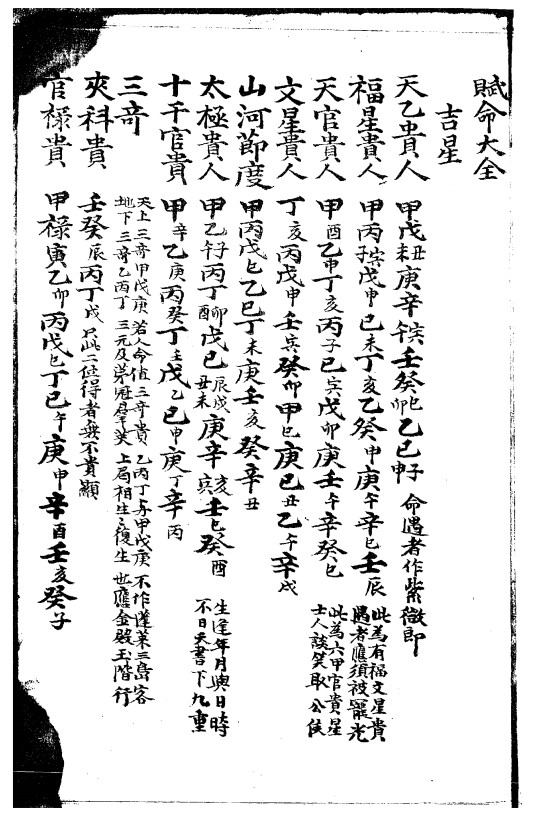 賦命大全
吉星
天乙貴人 甲戊丑未庚辛寅午壬癸巳卯乙己申子 命遇者作紫微郎
福星貴人 甲丙寅子戊申己未丁亥乙癸 庚午辛巳壬辰 此為有福文星貴遇者應須被寵光
天官貴人 甲酉乙申丁亥丙子己寅戊卯庚壬午辛癸巳 此為六甲官貴星士人談笑取公侯
文星貴人 丁亥丙戊申壬寅癸卯甲巳庚 己 乙午辛
山河節度 甲丙戊巳乙己丁未庚壬亥癸辛丑
太極貴人 甲乙子午丙丁卯酉戊己辰戌丑未庚辛寅亥壬巳癸酉 生逢年月與日時不日天書下九重
十干官貴 甲辛乙庚丙癸丁壬戊乙己甲庚丁辛丙
三奇 天上三奇甲戊庚 地下三奇乙丙丁 若人命值三奇貴 三元及第冠群英 乙丙丁 甲戊庚 上局相生 復生 不作蓬萊三島客 也應金殿玉階行
夾科貴 壬癸辰丙丁戌 只此二位得者無不貴顯
官祿貴 甲祿寅乙卯丙戊巳丁己午庚申辛酉壬亥癸子